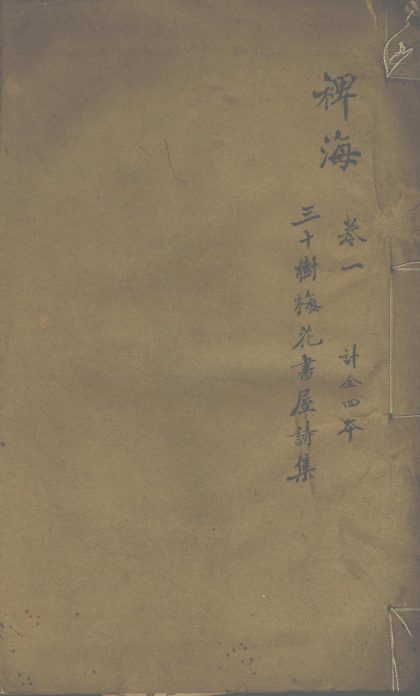 裨海
卷一 計全四本
三十樹梅花書屋詩集